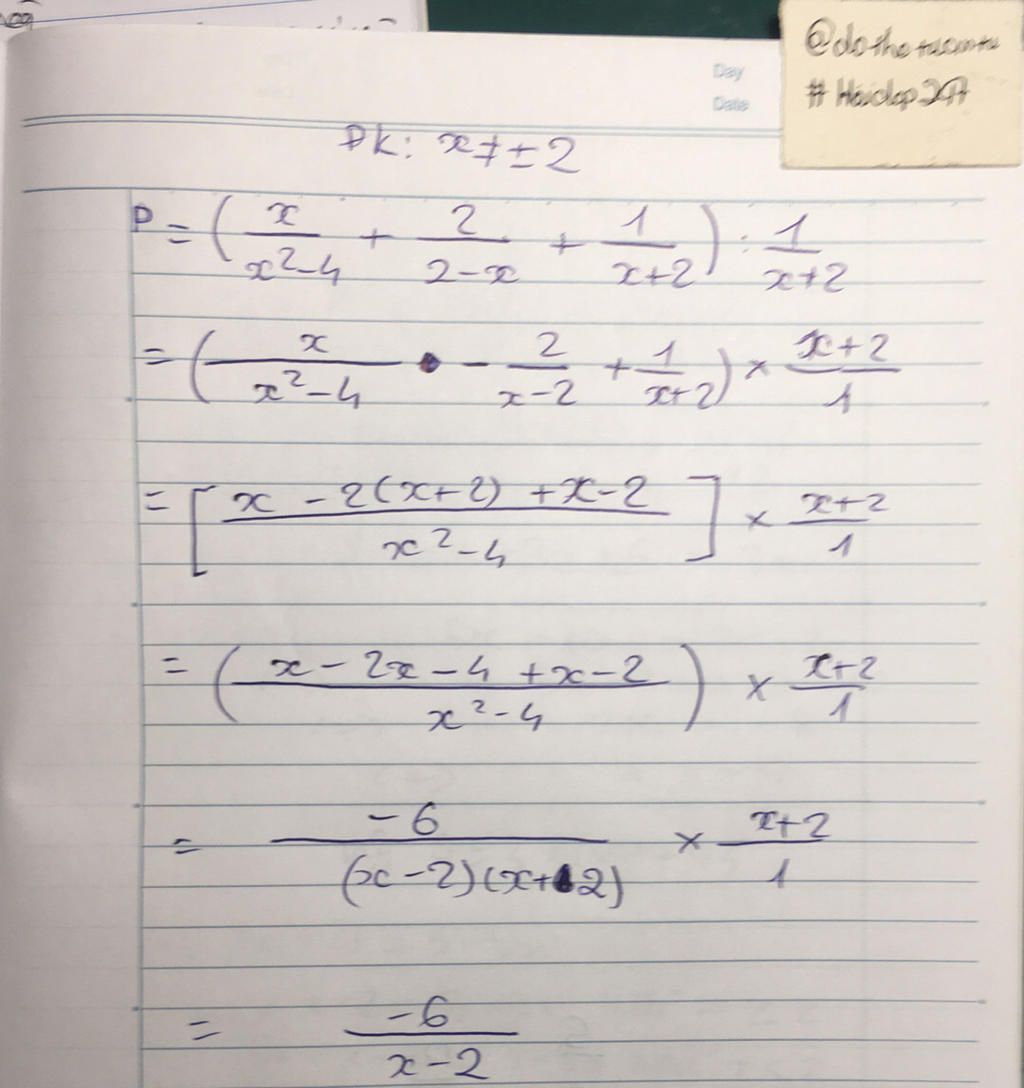 Day
Date
@dothetuantu
# Haidap247
ĐK: x ≠ ± 2
P = (x/(x²-4) + 2/(2-x) + 1/(x+2)) : 1/(x+2)
= (x/(x²-4) - 2/(x-2) + 1/(x+2)) × (x+2)/1
= [(x - 2(x+2) + x-2)/(x²-4)] × (x+2)/1
= ((x - 2x - 4 + x - 2)/(x²-4)) × (x+2)/1
= -6/((x-2)(x+2)) × (x+2)/1
= -6/(x-2)